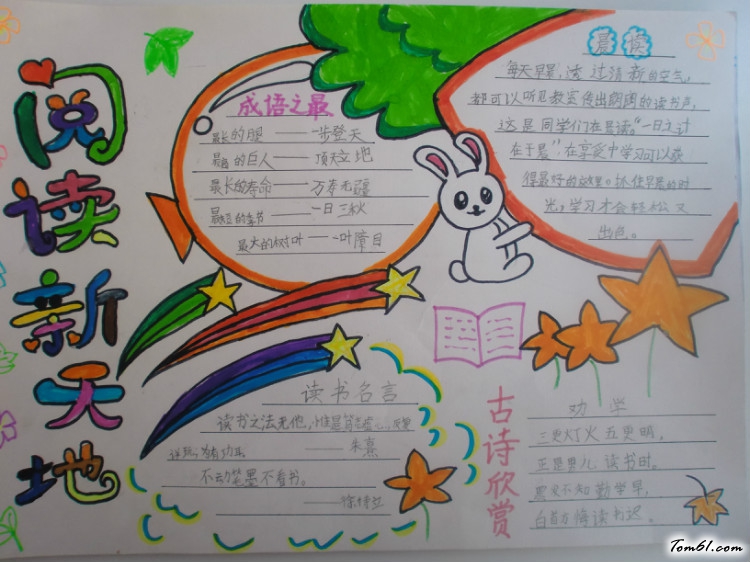 阅读新天地
成语之最
最长的腿——一步登天
最高的巨人——顶天立地
最长的寿命——万寿无疆
最短的季节——一日三秋
最大的树叶——一叶障目
晨读
每天早晨，透过清新的空气，
都可以听见教室传出朗朗的读书声，
这是同学们在晨读。“一日之计
在于晨”.在享受中学习可以获
得最好的效果。抓住早晨的时
光，学习才会轻松又
出色。
读书名言
读书之法无他，惟是笃志虚心，反复
详玩，为有功.
——朱熹
不动笔墨不看书。
——徐特立
古诗欣赏
劝学
三更灯火五更明，
正是男儿读书时。
黑发不知勤学早，
白首方悔读书迟。
Tom61.com